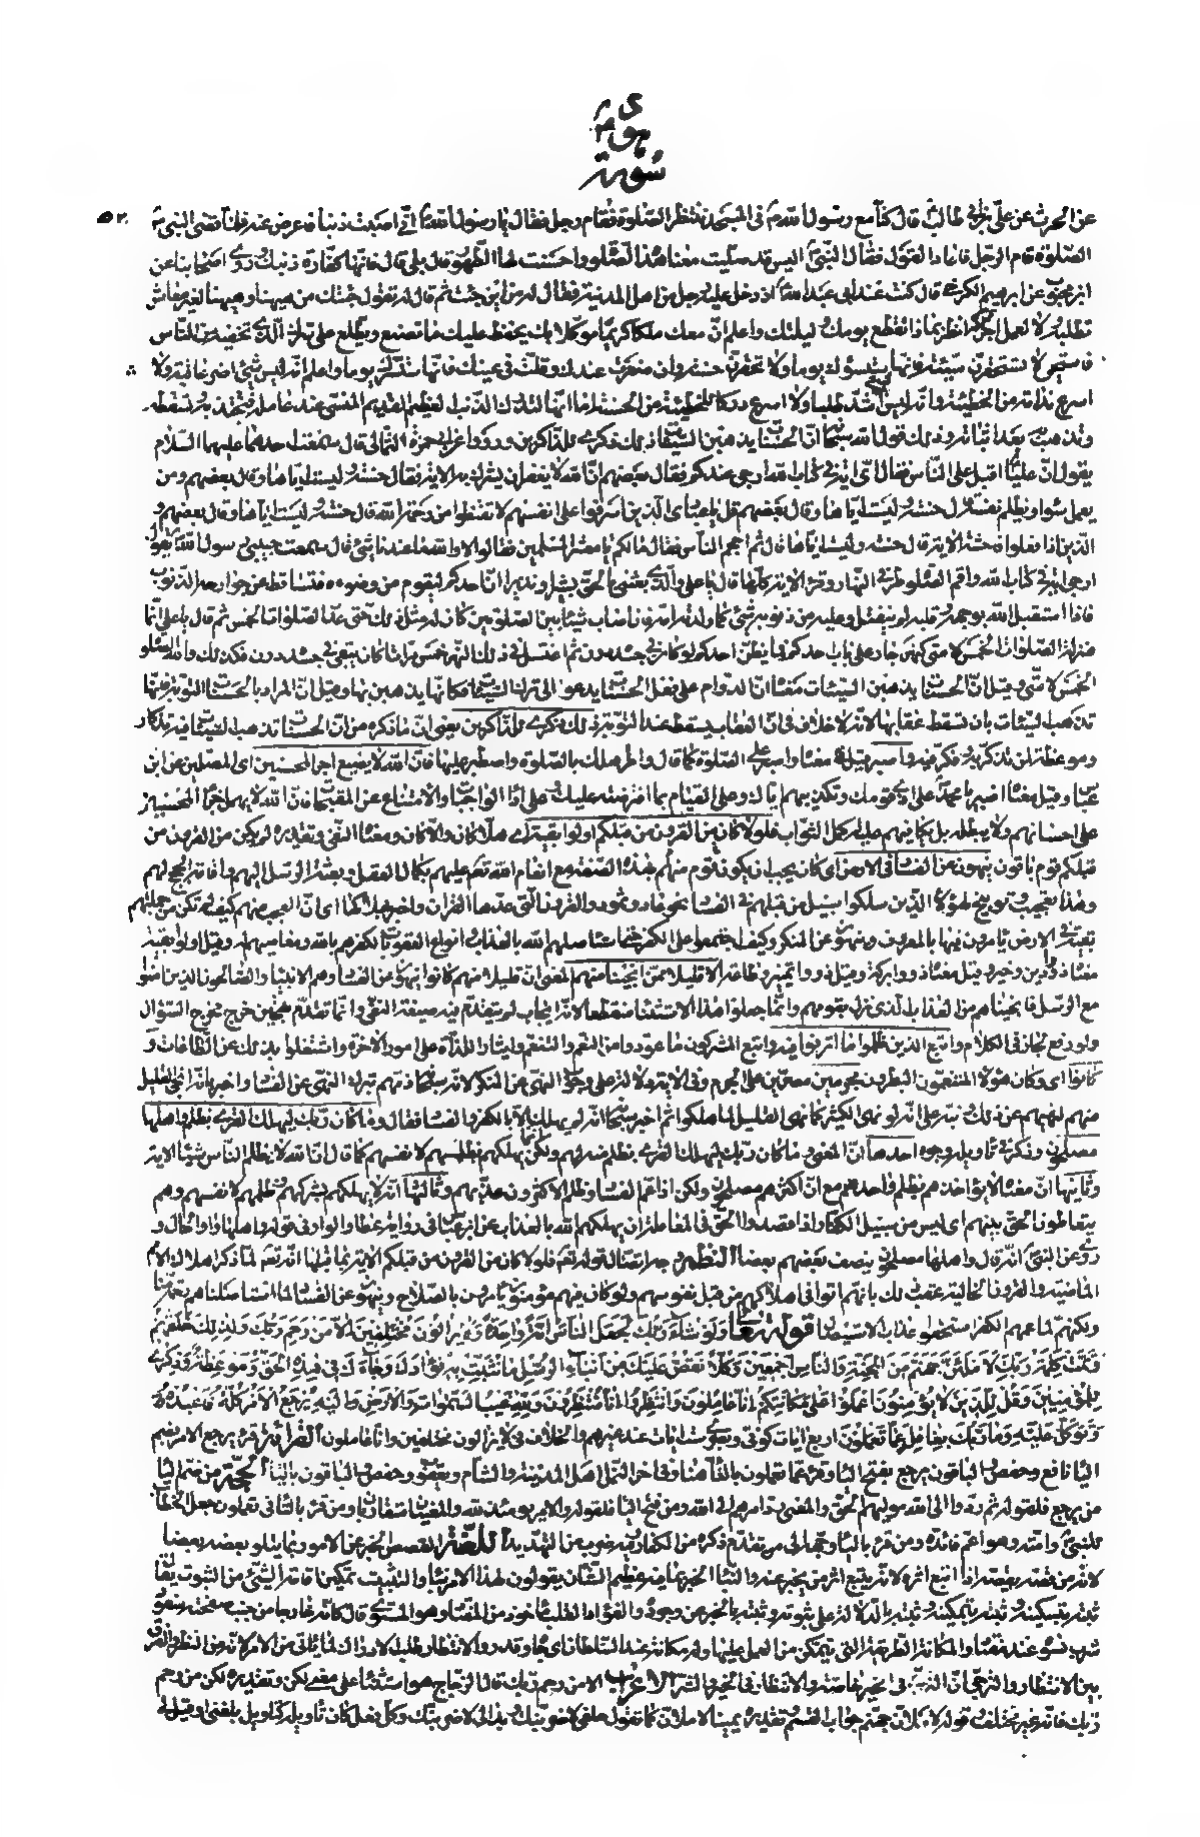 سورة
هود
عن الحرث عن علي بن ابي طالب قال كنا مع رسول الله في المسجد ننتظر الصلوة فقام رجل فقال يا رسول الله اني اصبت ذنبا فاعرض عنه فلما قضى النبي
الصلوة قام الرجل فاعاد القول فقال النبي اليس قد صليت معنا هذه الصلوة واحسنت لها الطهور قال بلى قال فانها كفارة ذنبك وروى اصحابنا عن
ابن محبوب عن ابرهيم الكرخي قال كنت عند ابي عبد الله اذ دخل عليه رجل من اهل المدينة فقال له من اين جئت ثم قال له تقول جئت من هيهنا وهيهنا لغير معاش
تطلبه ولا لعمل اخرة انظر بماذا تقطع يومك وليلتك واعلم ان معك ملكا كريما موكلا بك يحفظ عليك ما تصنع ويطلع على سرك الذي تخفيه من الناس
فاستحي ولا تستحقرن سيئة فانها ستسوئك يوما ولا تحقرن حسنة وان صغرت عندك وقلت في عينك فانها ستسرك يوما واعلم انه ليس شيء اضر عاقبة ولا
اسرع ندامة من الخطيئة وانه ليس شيء اشد طلبا ولا اسرع دركا للخطيئة من الحسنة اما انها لتدرك الذنب العظيم القديم المنسي عند عامله فتجذبه وتسقطه
وتذهب به بعد اثباته وذلك قول الله سبحانه ان الحسنات يذهبن السيئات ذلك ذكرى للذاكرين ورووا عن ابي حمزة الثمالي قال سمعت احدهما عليهما السلام
يقول ان عليا اقبل على الناس فقال اي اية في كتاب الله ارجى عندكم فقال بعضهم ان الله لا يغفر ان يشرك به الاية فقال حسنة وليست اياها وقال بعضهم ومن
يعمل سوءا او يظلم نفسه قال حسنة وليست اياها وقال بعضهم قل يا عبادي الذين اسرفوا على انفسهم لا تقنطوا من رحمة الله قال حسنة وليست اياها وقال بعضهم و
الذين اذا فعلوا فاحشة الاية قال حسنة وليست اياها قال ثم احجم الناس فقال ما لكم يا معشر المسلمين فقالوا لا والله ما عندنا شيء قال سمعت حبيبي رسول الله يقول
ارجى اية في كتاب الله واقم الصلوة طرفي النهار وقرء الاية كلها قال يا علي والذي بعثني بالحق بشيرا ونذيرا ان احدكم ليقوم من وضوءه فتساقط عن جوارحه الذنوب
فاذا استقبل الله بوجهه وقلبه لم ينفتل وعليه من ذنوبه شيء كما ولدته امه فان اصاب شيئا بين الصلوتين كان له مثل ذلك حتى عد الصلوات الخمس ثم قال يا علي انما
منزلة الصلوات الخمس لامتي كنهر جار على باب احدكم فما يظن احدكم لو كان في جسده درن ثم اغتسل في ذلك النهر خمس مرات اكان يبقى في جسده درن فكذلك والله الصلوات
الخمس لامتي وقيل ان الحسنات يذهبن السيئات معناه ان الدوام على فعل الحسنات يدعو الى ترك السيئات فكانها يذهبن بها وقيل ان المراد بالحسنات التوبة فانها
تذهب السيئات بان تسقط عقابها لانه لا خلاف في ان العقاب يسقط عند التوبة ذلك ذكرى للذاكرين يعني ان ما ذكره من ان الحسنات تذهب السيئات فيه تذكار
وموعظة لمن تذكر به وفكر فيه واصبر قيل في معناه واصبر على الصلوة كما قال وامر اهلك بالصلوة واصطبر عليها فان الله لا يضيع اجر المحسنين اي المصلين عن ابن
عباس وقيل معناه اصبر يا محمد على اذى قومك وتكذيبهم اياك وعلى القيام بما افترضته عليك وعلى اداء الواجبات والامتناع عن المقبحات فان الله لا يهمل اجر المحسنين
على احسانهم ولا يبطله بل يكافيهم عليه اكمل الثواب فلولا كان من القرون من قبلكم اولوا بقية اي هلا كان والا كان ومعناه النفي وتقديره لم يكن من القرون من
قبلكم قوم باقون ينهون عن الفساد في الارض اي كان يجب ان يكون قوم منهم بهذه الصفة مع انعام الله تعم عليهم بكمال العقل وبعثة الرسل اليهم واقامة الحجج لهم
وهذا تعجيب وتوبيخ لهؤلاء الذين سلكوا سبيل من قبلهم في الفساد نحو عاد وثمود والقرون التي عدها القران واخبر بهلاكها اي ان العجب منهم كيف لم تكن من جملتهم
بقية في الارض يامرون فيها بالمعروف وينهون عن المنكر وكيف اجتمعوا على الكفر حتى استاصلهم الله بالعذاب وانواع العقوبات لكفرهم بالله ومعاصيهم له وقيل اولوا بقية
معناه ذووا دين وخير وقيل معناه ذووا بركة وقيل ذووا تمييز وطاعة الا قليلا ممن انجينا منهم المعنى ان قليلا منهم كانوا ينهون عن الفساد وهم الانبياء والصالحون الذين امنوا
مع الرسل فانجيناهم من العذاب الذي نزل بقومهم وانما جعلوا هذا الاستثناء منقطعا لانه ايجاب لم يتقدم فيه صيغة النفي وانما تقدم تهجين خرج مخرج السؤال
ولو رفع لجاز في الكلام واتبع الذين ظلموا ما اترفوا فيه واتبع المشركون ما عودوا من النعم والتنعم وايثار اللذة على امور الاخرة واشتغلوا بذلك عن الطاعات و
كانوا اي وكان هؤلاء المتنعمون البطرون مجرمين مصرين على الجرم وفي الاية دلالة على وجوب النهي عن المنكر لانه سبحانه ذمهم بترك النهي عن الفساد واخبر بانه انجى القليل
منهم لنهيهم عن ذلك ونبه على انه لو نهى الكثير كما نهى القليل لما هلكوا ثم اخبر سبحانه انه لم يهلك الا بالكفر والفساد فقال وما كان ربك ليهلك القرى بظلم واهلها
مصلحون وذكر في تاويله وجوه احدها ان المعنى وما كان ربك ليهلك القرى بظلم منه لهم ولكن انما يهلكهم بظلمهم لانفسهم كما قال ان الله لا يظلم الناس شيئا الاية
وثانيها ان معناه لا يؤاخذهم بظلم واحدهم مع ان اكثرهم مصلحون ولكن اذا عم الفساد وظلم الاكثرون عذبهم وثالثها انه لا يهلكهم بشركهم وظلمهم لانفسهم وهم
يتعاطون الحق بينهم اي ليس من سبيل الكفار اذا قصدوا الحق في المعاملة ان يهلكهم الله بالعذاب عن ابن عباس في رواية عطا والواو في قوله واهلها واو الحال و
روي عن النبي انه قال واهلها مصلحون ينصف بعضهم بعضا النظم وجه اتصال قوله تعم فلولا كان من القرون من قبلكم الاية بما قبلها انه تعم لما ذكر اهلاك الامم
الماضية والقرون الخالية عقب ذلك بانهم اتوا في اهلاكهم من قبل نفوسهم ولو كان فيهم مؤمنون يامرون بالصلاح وينهون عن الفساد لما استاصلناهم رحمة منا
ولكنهم لما عمهم الكفر استحقوا عذاب الاستيصال قوله تعا ولو شاء ربك لجعل الناس امة واحدة ولا يزالون مختلفين الا من رحم ربك ولذلك خلقهم
وتمت كلمة ربك لاملئن جهنم من الجنة والناس اجمعين وكلا نقص عليك من انباء الرسل ما نثبت به فؤادك وجاءك في هذه الحق وموعظة وذكرى
للمؤمنين وقل للذين لا يؤمنون اعملوا على مكانتكم انا عاملون وانتظروا انا منتظرون ولله غيب السموات والارض واليه يرجع الامر كله فاعبده
وتوكل عليه وما ربك بغافل عما تعملون اربع ايات كوفي وبصري ست ايات عند غيرهم والخلاف في ولا يزالون مختلفين وانا عاملون القراءة قرء يرجع الامر بضم
الياء نافع وحفص والباقون يرجع بفتح الياء وقرء عما تعملون بالتاء هنا وفي اخر النمل اهل المدينة والشام ويعقوب وحفص والباقون بالياء الحجة من ضم الياء
من يرجع فلقوله ثم ردوا الى الله موليهم الحق والمعنى رد امرهم الى الله ومن فتح الياء فلقوله والامر يومئذ لله والمعنيان متقاربان ومن قرء بالتاء في تعملون جعل الخطاب
للنبي وامته وهو اعم فائدة ومن قرء بالياء وجهه الى من تقدم ذكره من الكفار وفيه ضرب من التهديد اللغة القصص الخبر عن الامور بما يتلو بعضه بعضا
لانه من قصه يقصه اذا اتبع اثره لانه يتبع اثر من يخبر عنه والنبا الخبر بما فيه عظيم الشان يقولون لهذا الامر نبأ والتثبيت تمكين اقامة الشيء من الثبوت يقال
ثبته بتسكينه وثبته بتمكينه وثبته بالدلالة على ثبوته وثبته بالخبر عن وجوده والفؤاد القلب ماخوذ من المفتاد وهو المشوي قال كانه خارجا من جنب صفحته سفود
شرب نسوه عند مفتاد والمكانة الطريقة التي يتمكن من العمل عليها وله مكانة عند السلطان اي جاه وقدر والانتظار طلب الادراك لما ياتي من الامر لانه من النظر والفرق
بين الانتظار والترجي ان الترجي في الخير خاصة والانتظار في الخير والشر الاعراب الا من رحم ربك قال الزجاج هو استثناء على معنى لكن وتقديره لكن من رحم
ربك فانه غير مختلف وقوله لاملان جهنم جواب القسم تقديره يمينا لاملان كما تقول حلفي لاضربنك وبدا لي لاضربنك وكل فعل كان تاويله كتاويل بلغني او قيل لي